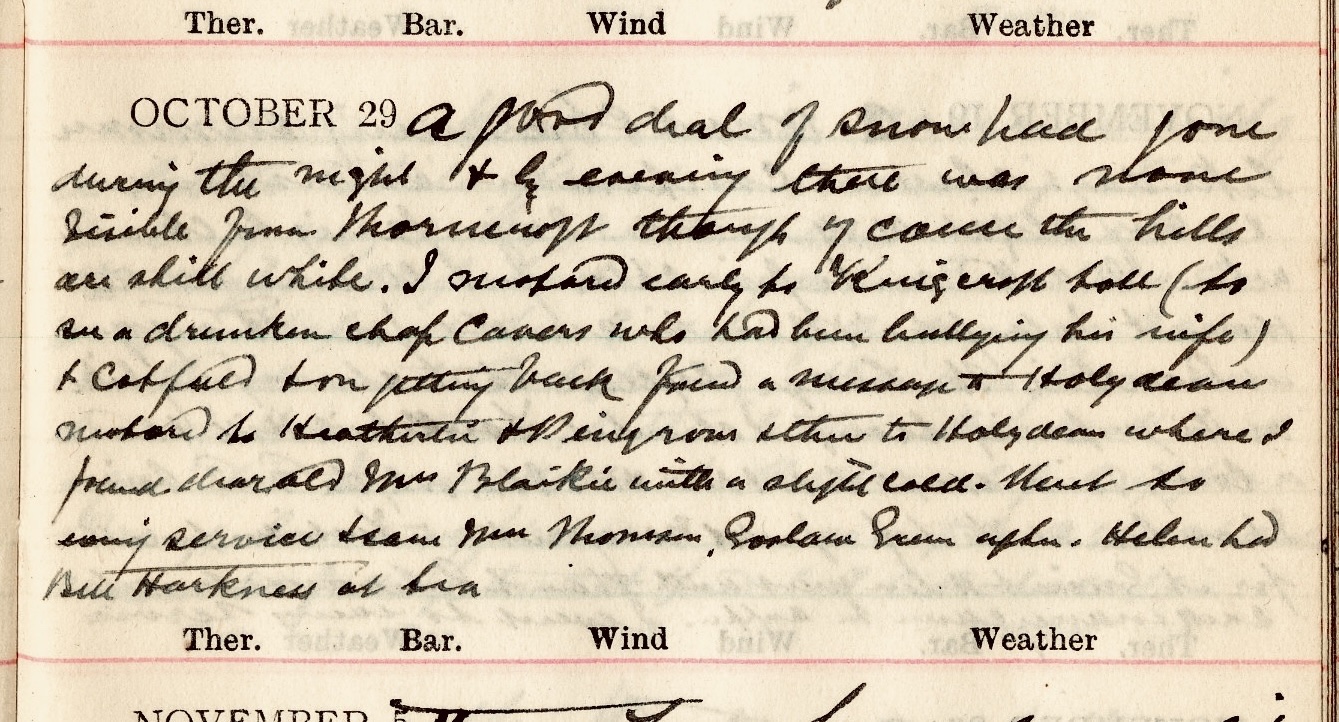 Ther. Bar. Wind Weather
OCTOBER 29 A good deal of snow had gone
during the night & by evening there was none
visible from Thorncroft though of course the hills
are still white. I motored early to Kingcroft toll (to
see a drunken chap Cavers who had been bullying his wife)
& Catfield & on getting back found a message to Holydean
motored to & then to Holydean where I
found dear old Mrs Blaikie with a slight cold. Went to
evening service & saw Mrs Thomson, Green after. Helen had
Bill Harkness at tea
Ther. Bar. Wind Weather
NOVEMBER 5